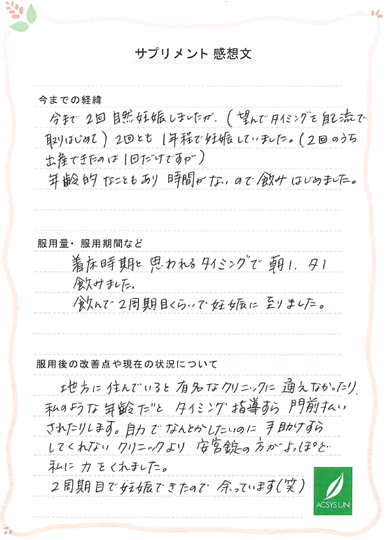 サプリメント 感想文
今までの経緯
今まで2回 自然妊娠しましたが、(望んでタイミングを自己流で
取りはじめて) 2回とも 1年程で妊娠していました。(2回のうち
出産できたのは1回だけですが)
年齢的なこともあり 時間がないので飲みはじめました。
服用量・服用期間など
着床時期と思われるタイミングで 朝1. 夕1
飲みました。
飲んで2周期目くらいで妊娠に至りました。
服用後の改善点や現在の状況について
地方に住んでいると有名なクリニックに通えなかったり、
私のような年齢だと タイミング指導すら 門前払い
されたりします。自力でなんとかしたいのに 手助けすら
してくれない クリニックより 安宮錠の方がよっぽど
私に力をくれました。
2周期目で妊娠できたので 余っています(笑)
ACSYS UN